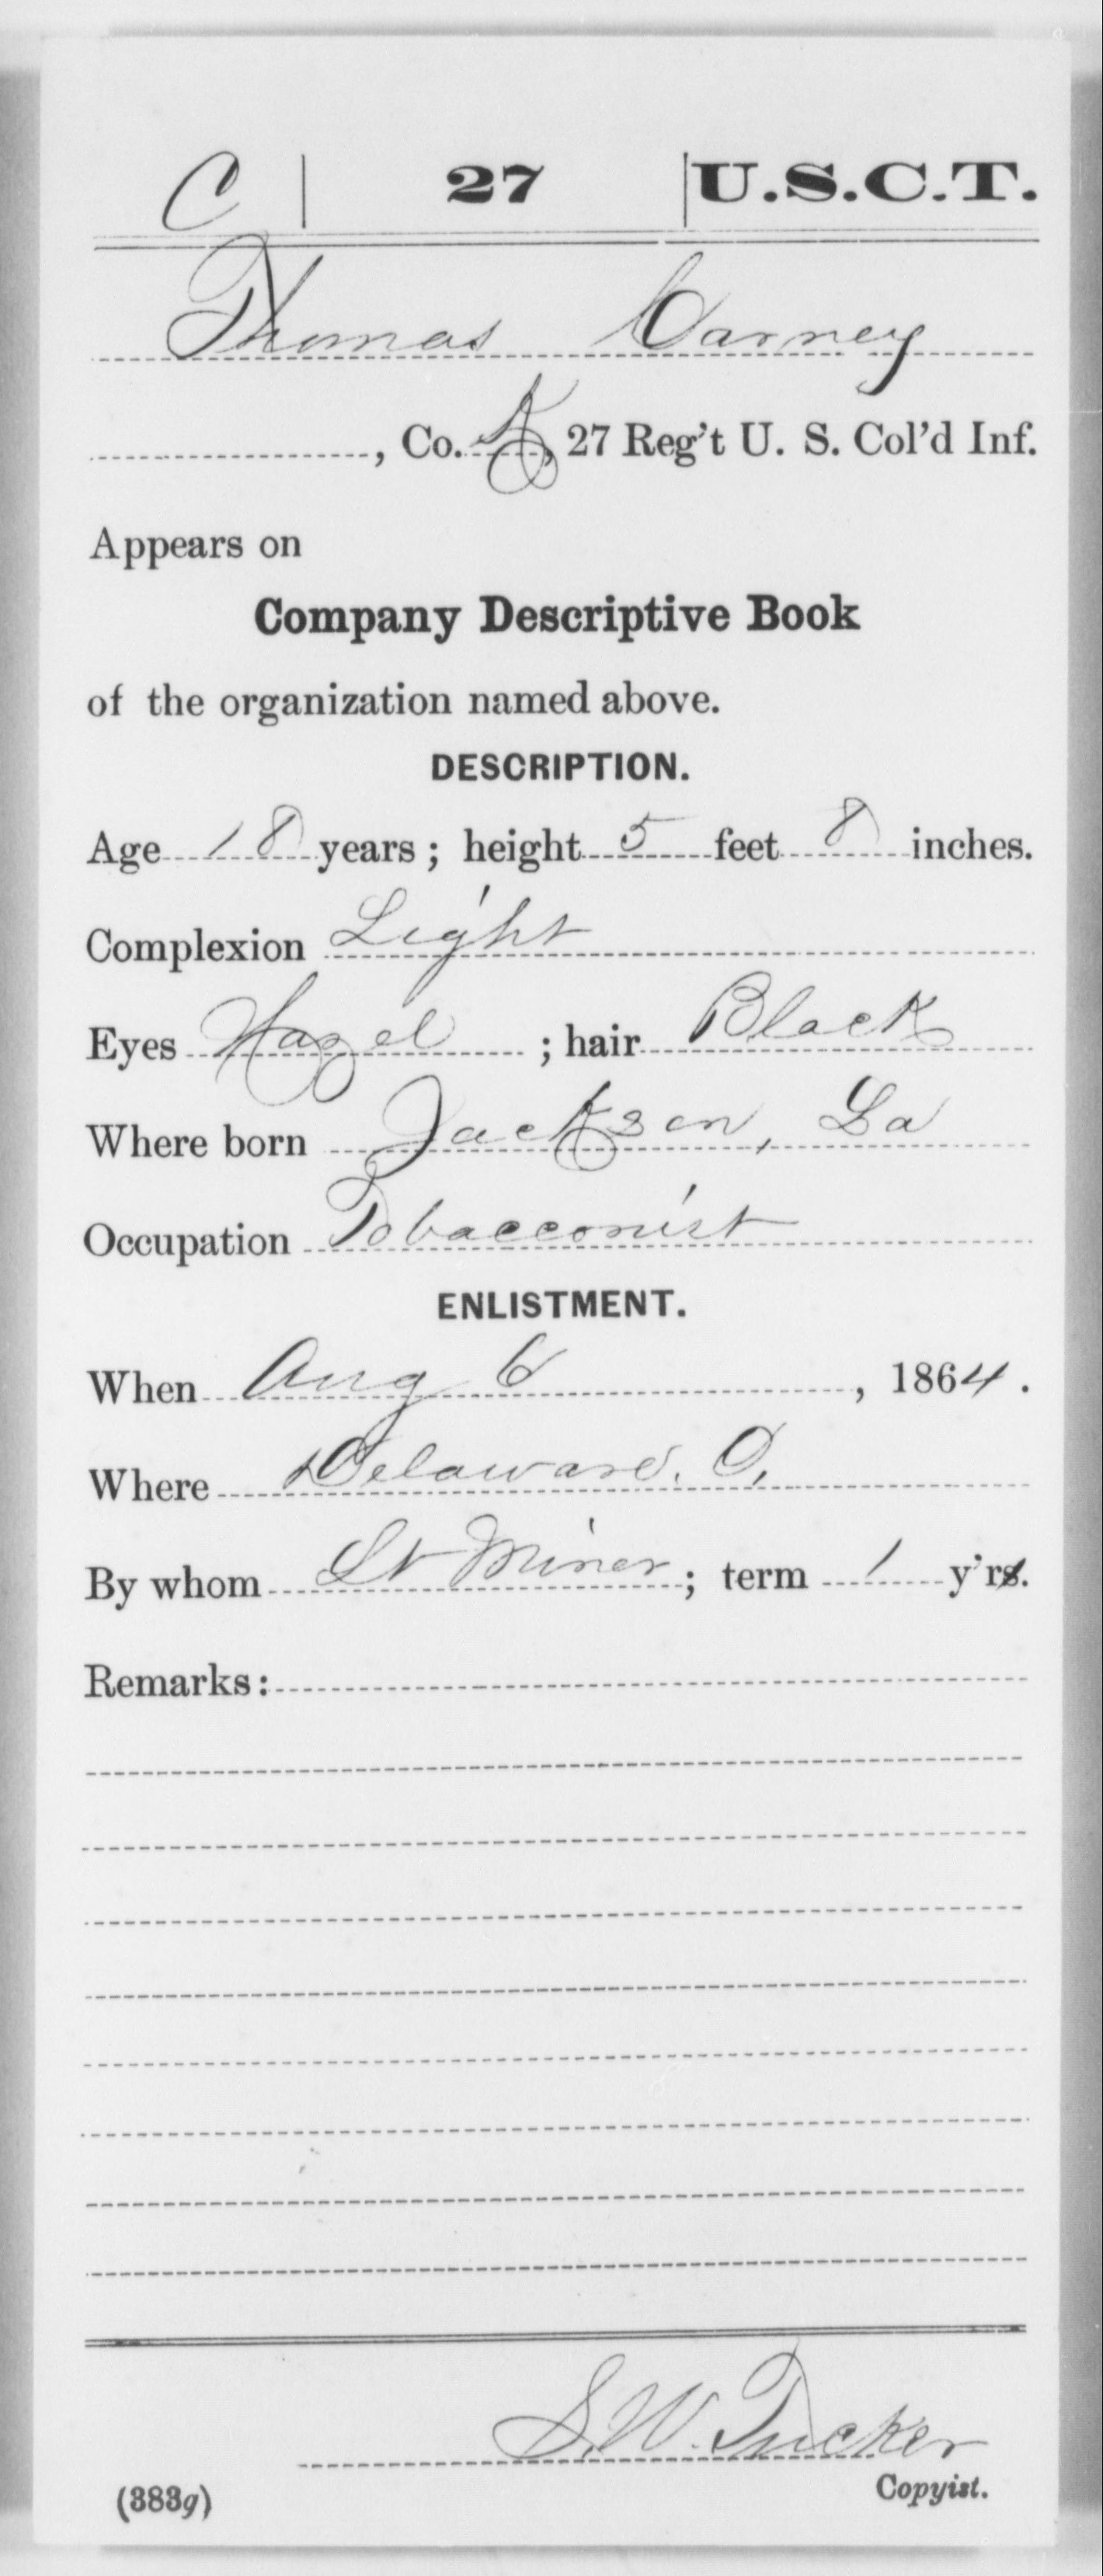 C | 27 | U.S.C.T.
Thomas Carney
, Co. K, 27 Reg't U. S. Col'd Inf.
Appears on
Company Descriptive Book
of the organization named above.
DESCRIPTION.
Age 18 years; height 5 feet 8 inches.
Complexion Light
Eyes Hazel ; hair Black
Where born Jackson, La
Occupation Tobacconist
ENLISTMENT.
When Aug 6, 1864.
Where Delaware. O,
By whom Lt Miner; term 1 y'rs.
Remarks:
S. W. Tucker
Copyist.
(383g)